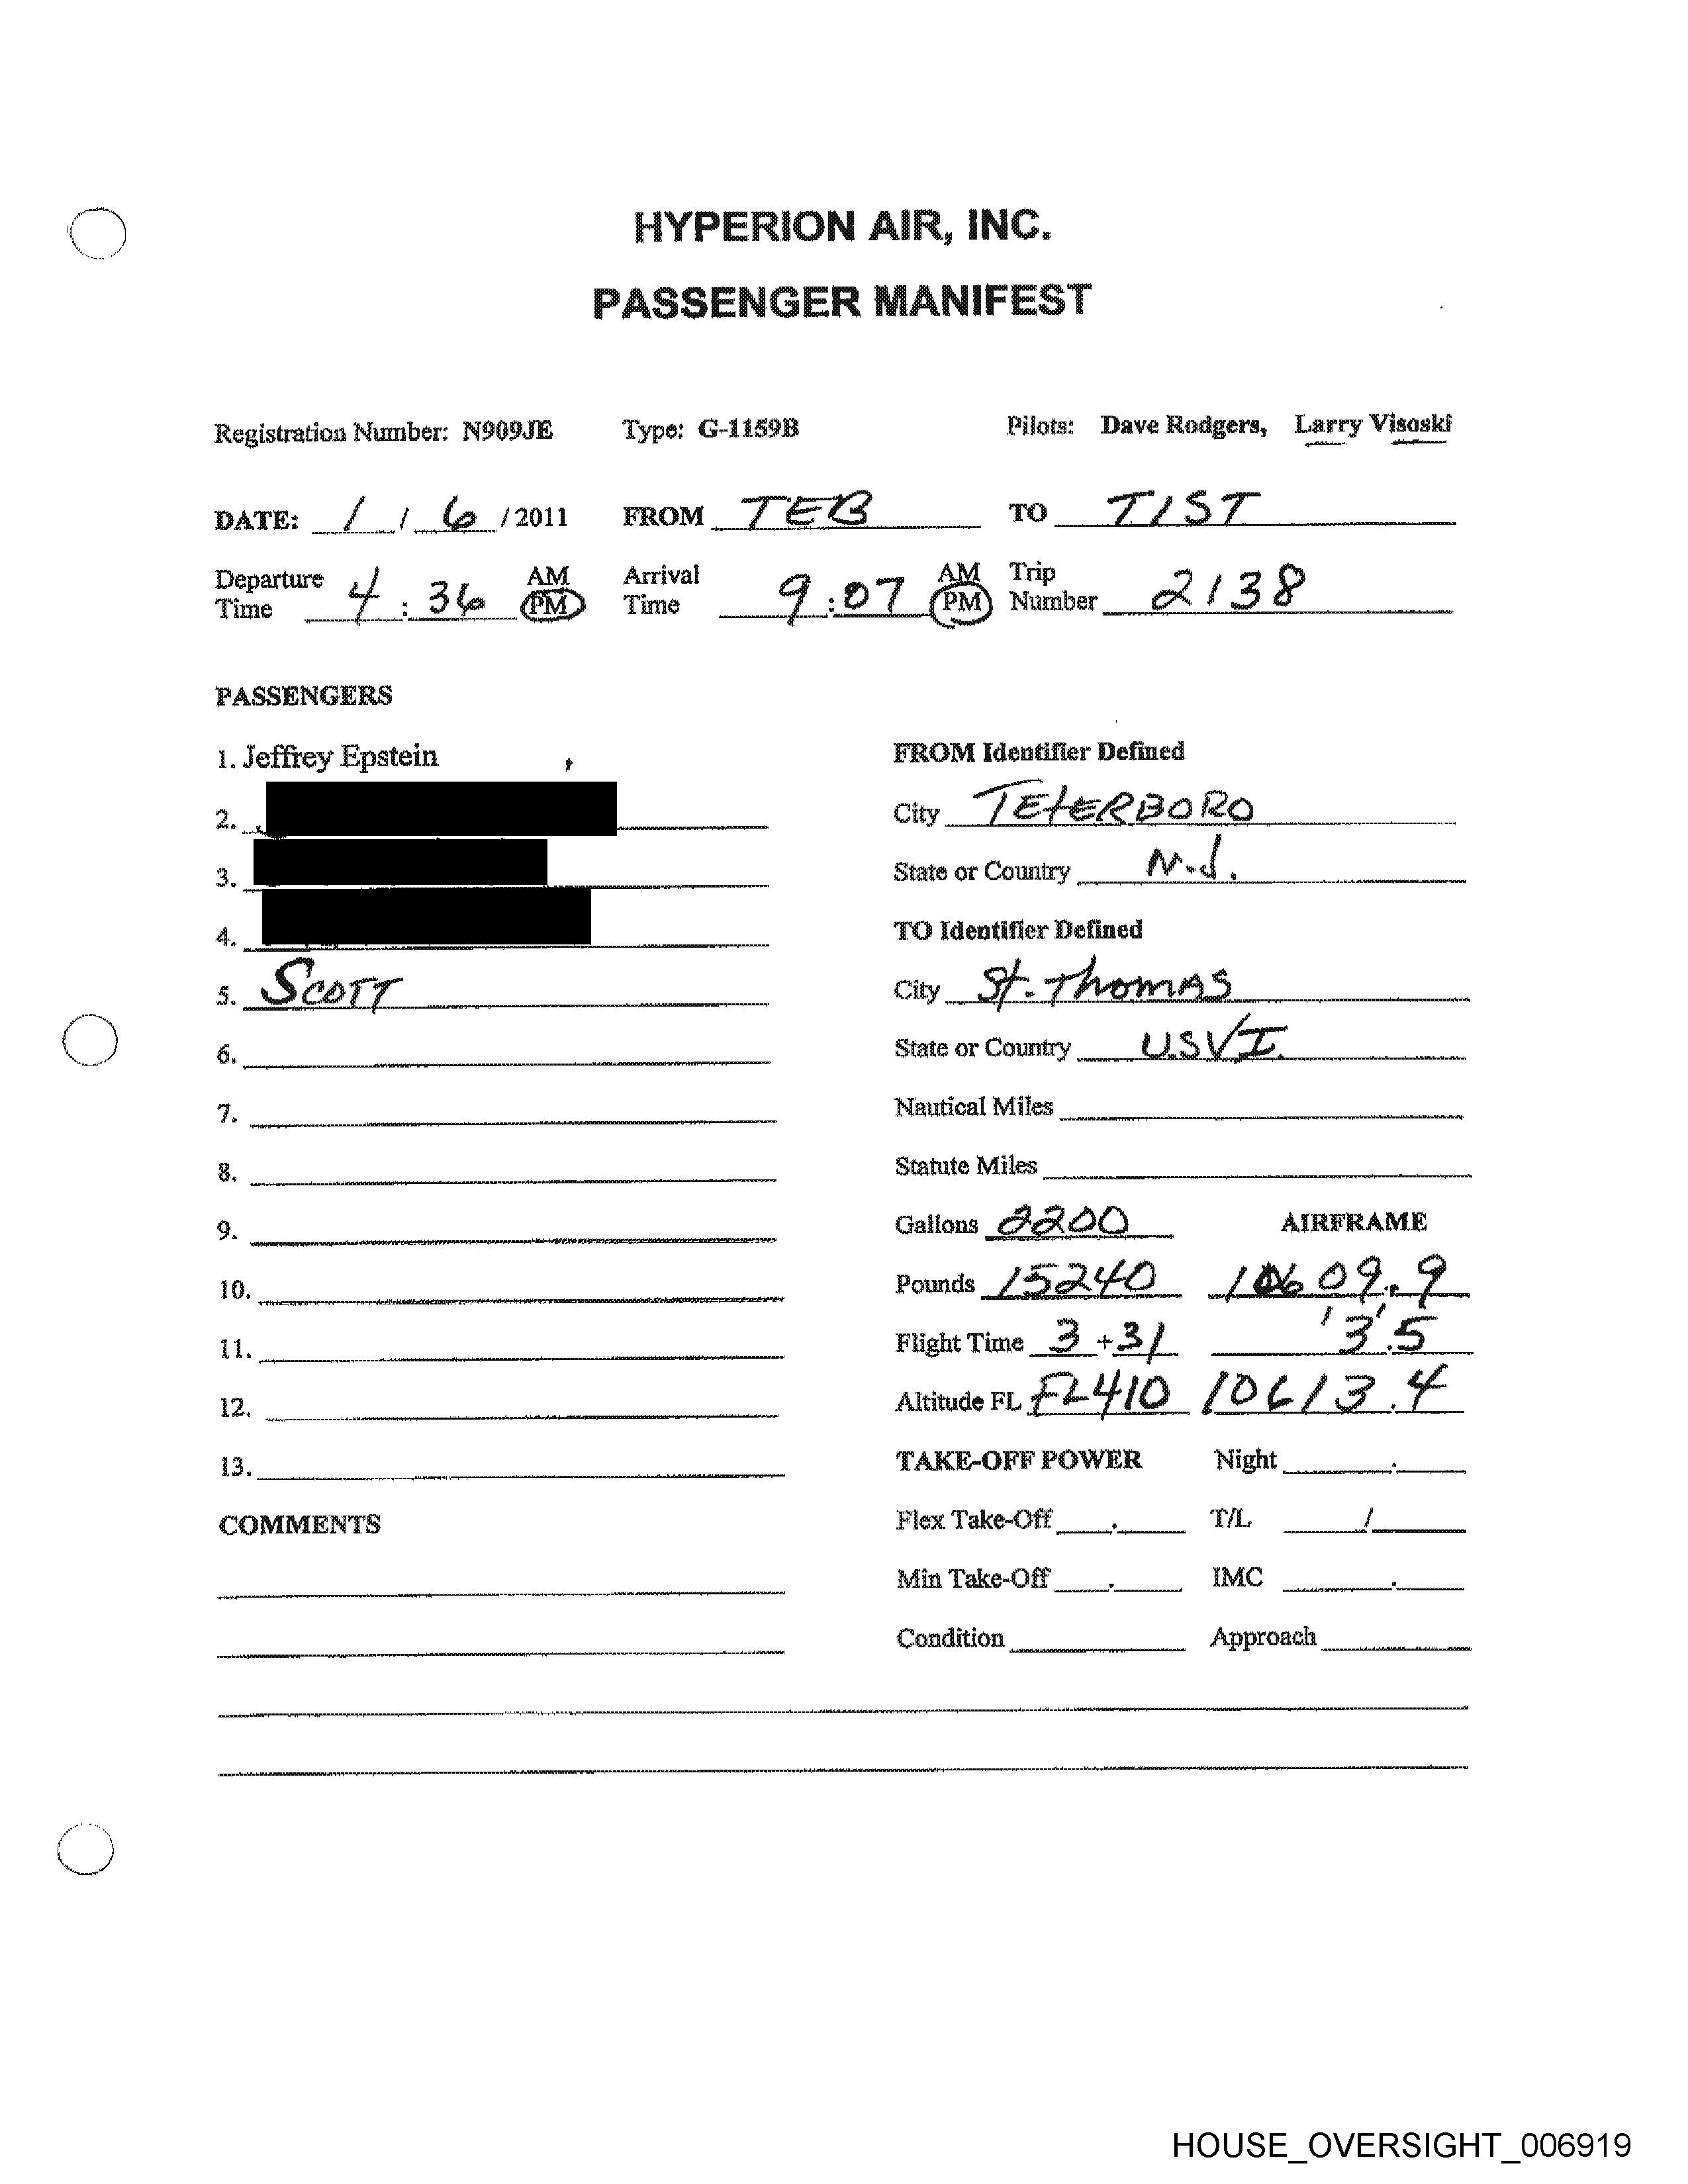 HYPERION AIR, INC.
PASSENGER MANIFEST
Registration Number: N909JE Type: G-1159B Pilots: Dave Rodgers, Larry Visoski
DATE: 1 / 6 / 2011 FROM TEB TO TIST
Departure Time 4 : 36 AM PM Arrival Time 9:07 AM PM Trip Number 2138
PASSENGERS
1. Jeffrey Epstein
2.
3.
4.
5. SCOTT
6.
7.
8.
9.
10.
11.
12.
13.
COMMENTS
FROM Identifier Defined
City TETERBORO
State or Country N.J.
TO Identifier Defined
City St. Thomas
State or Country U.S.V.I.
Nautical Miles
Statute Miles
Gallons 2200 AIRFRAME
Pounds 15240 10609.9
Flight Time 3 + 31 3.5
Altitude FL FL410 10613.4
TAKE-OFF POWER Night .
Flex Take-Off . T/L /
Min Take-Off . IMC .
Condition Approach
HOUSE_OVERSIGHT_006919